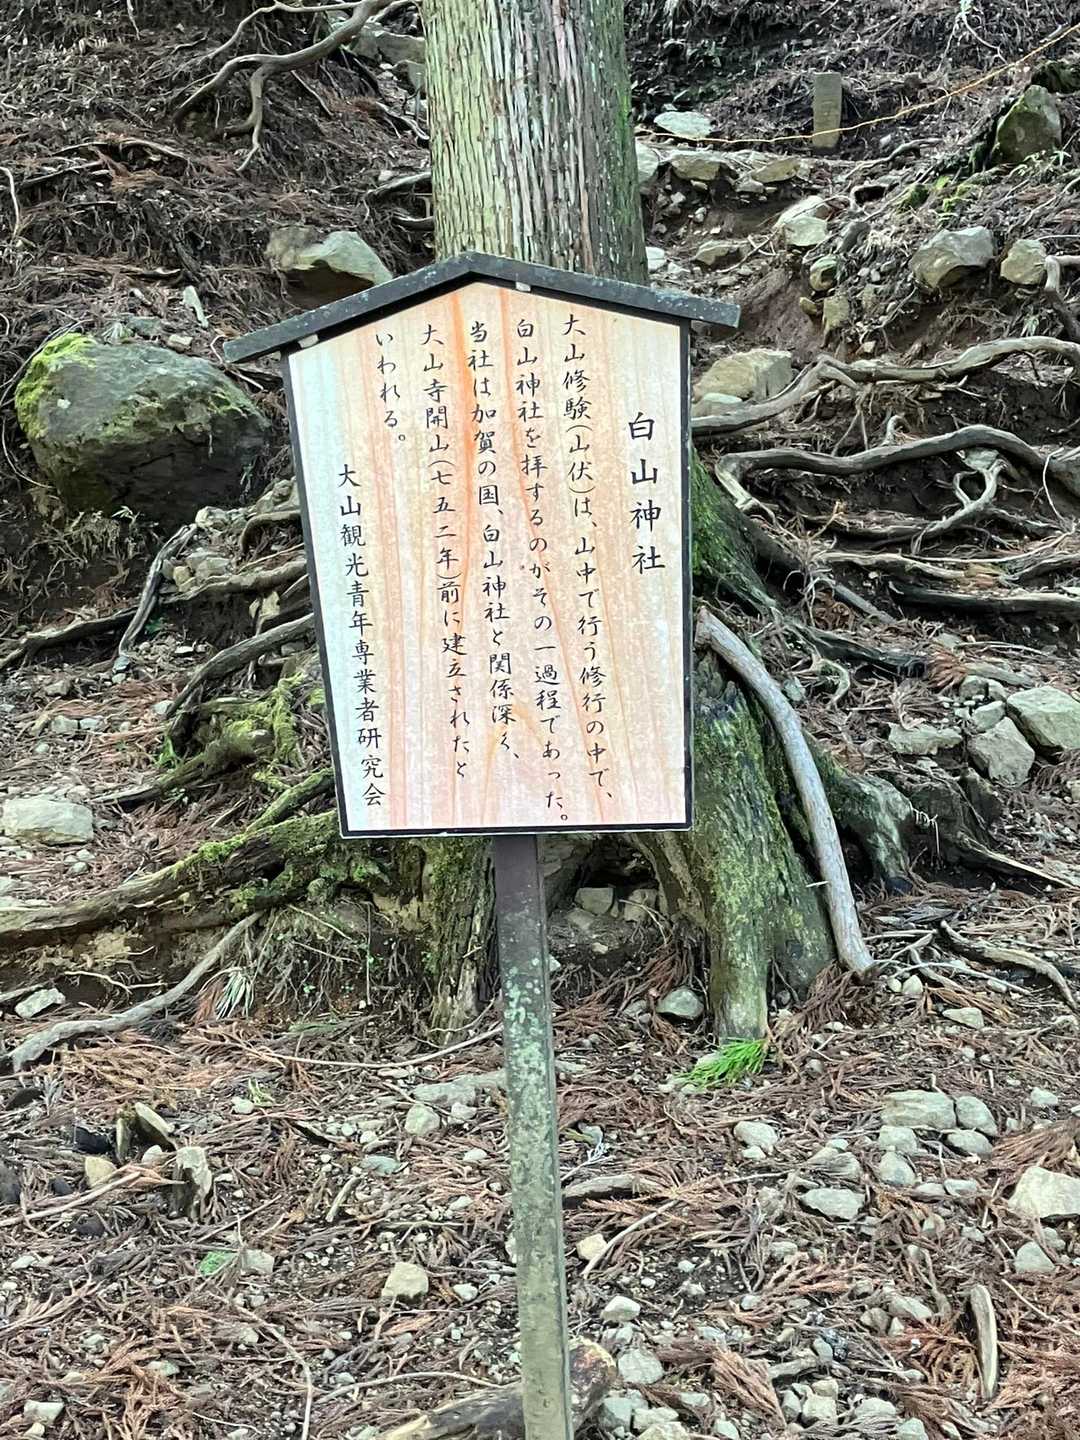 白山神社
大山修験(山伏)は、山中で行う修行の中で、
白山神社を拝するのがその一過程であった。
当社は加賀の国、白山神社と関係深く、
大山寺開山(七五二年)前に建立されたと
いわれる。
大山観光青年専業者研究会